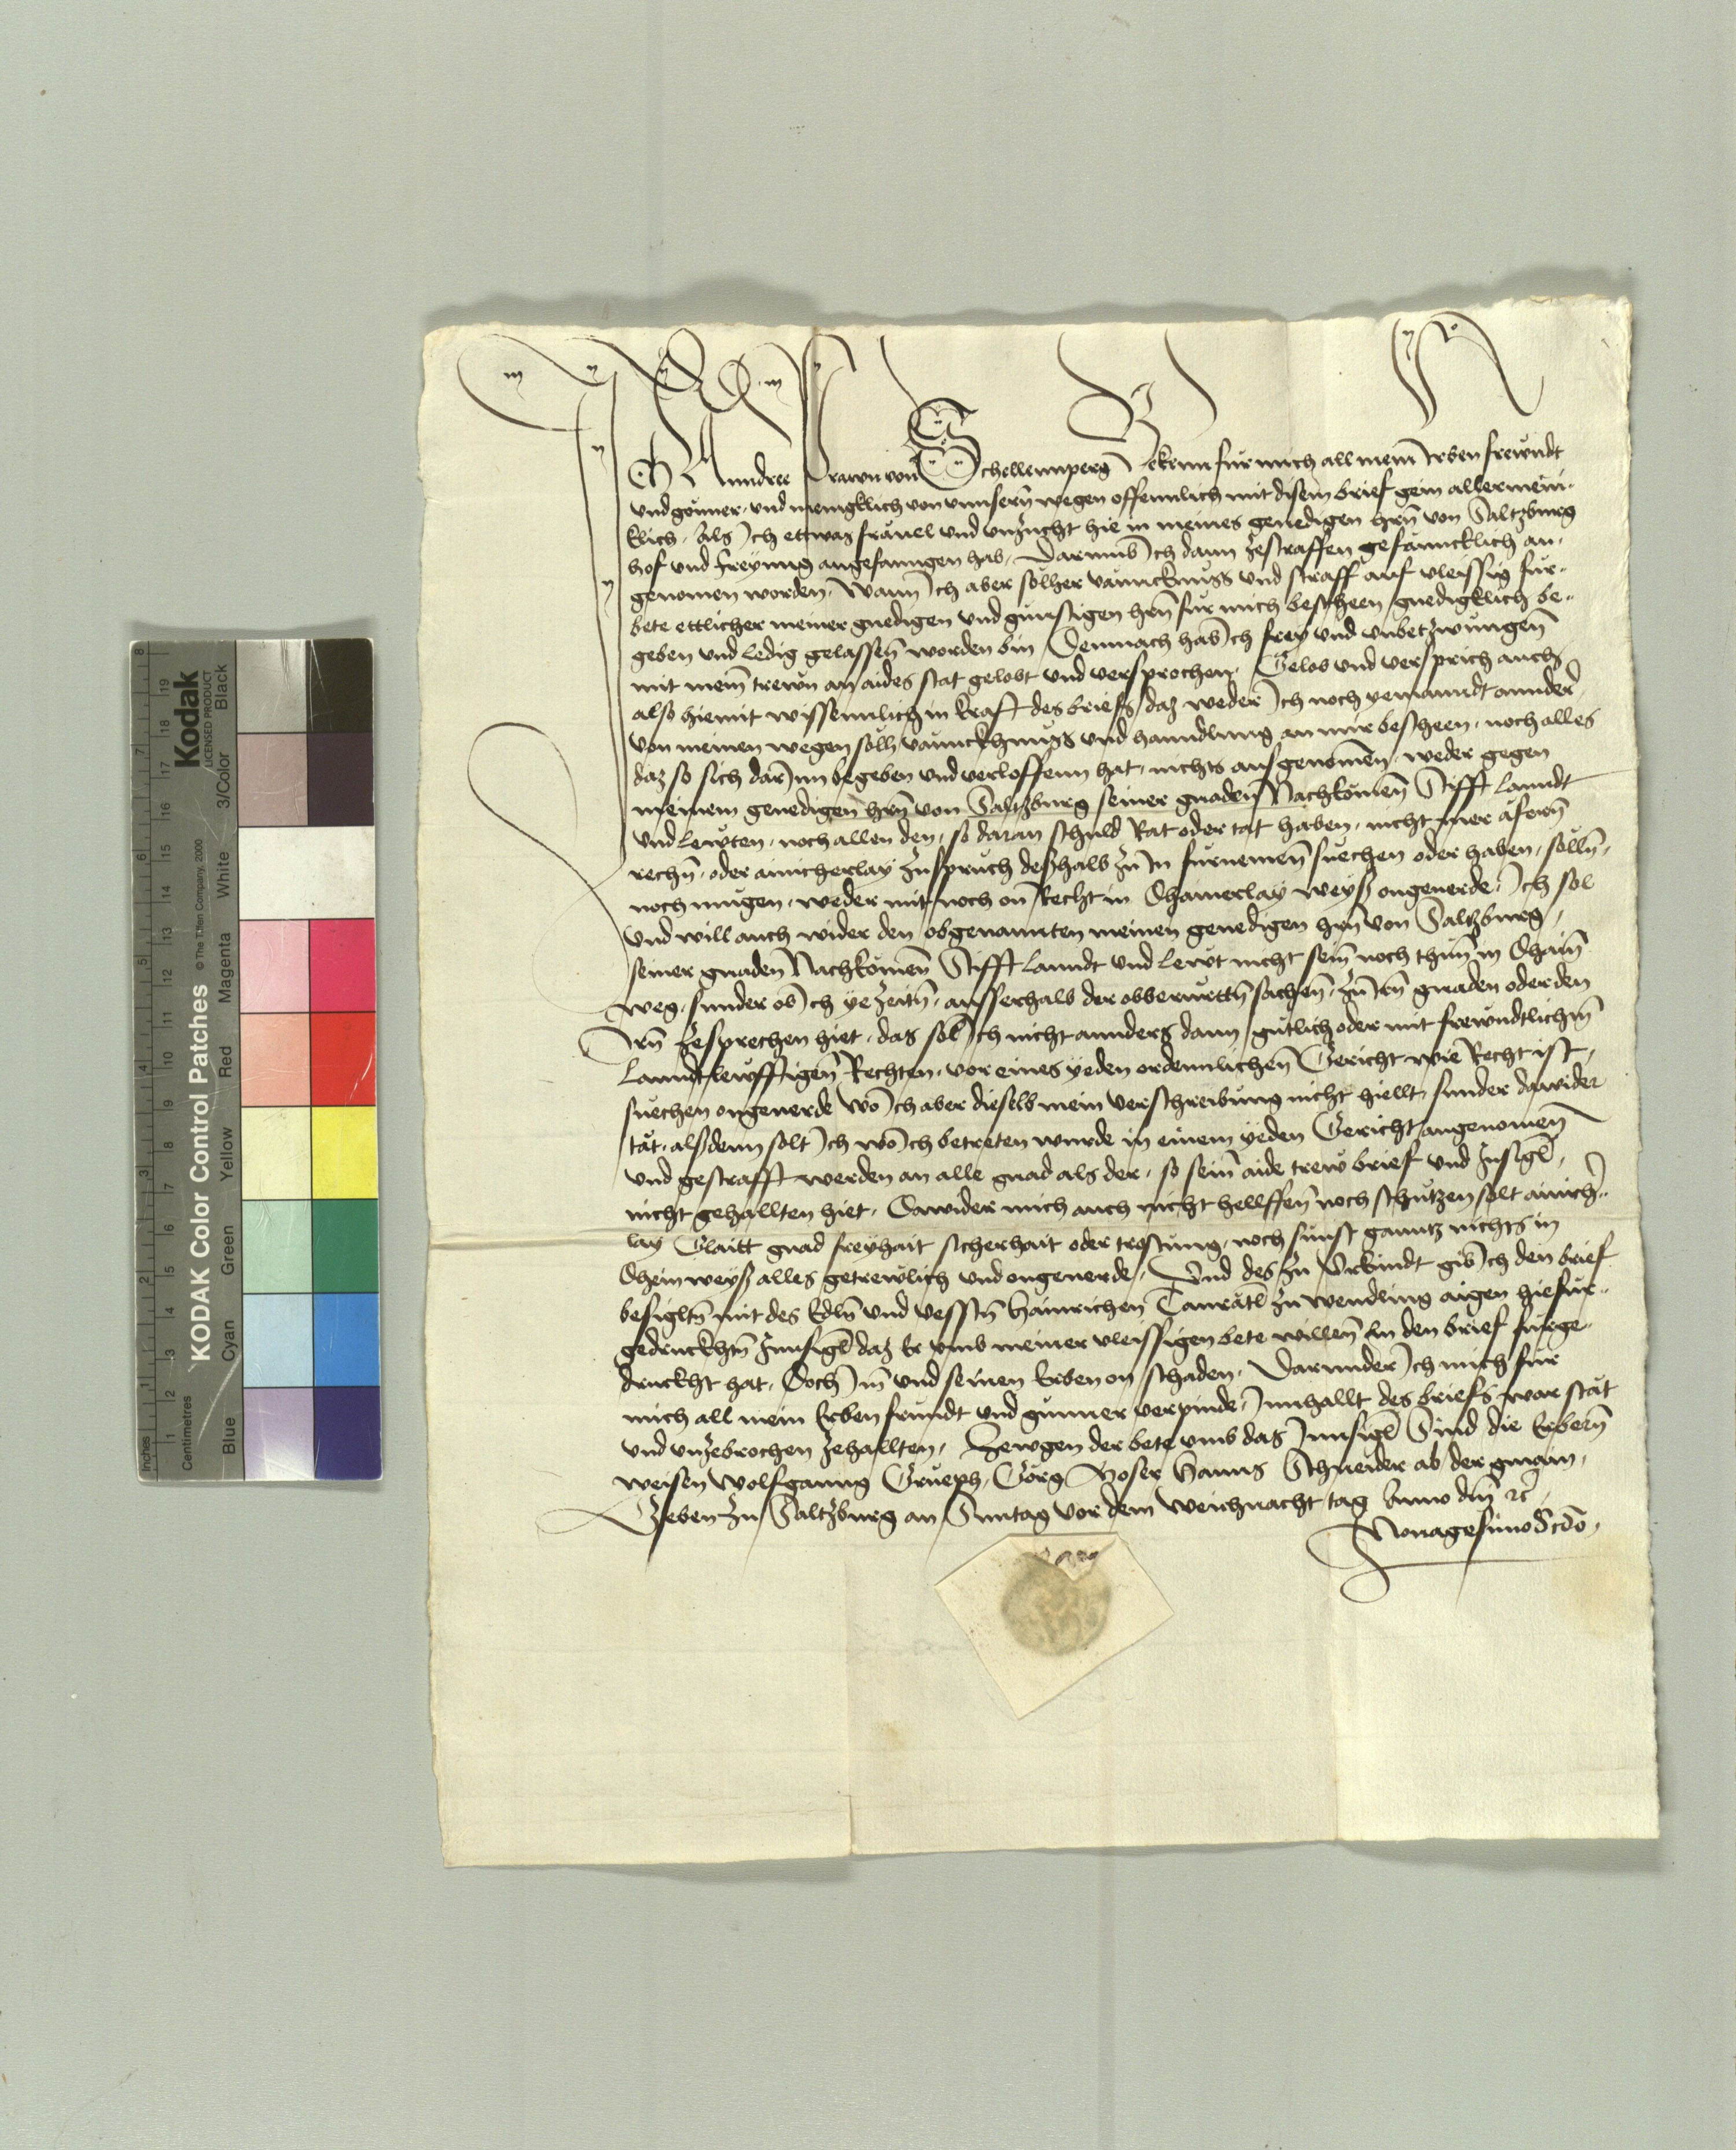 Ich Anndree Prawn von Schellennperg Bekenn fur mich all mein Erben frewndt
und gonner, und menigklich von unnsern wegen offennlich mit disem brief gein allermeni-
klich, Als Ich ettwas frävel und unzucht hie in meines genedigen hrn von Saltzburg
hof und freyung angefanngen hab, Darumb Ich dann zestraffen gefänncklich an-
genomen worden, Wann Ich aber solher vännckhnuss und straff auf vleissig fur-
bete ettlicher meiner gnedigen und gunstigen hrn fur mich bescheen gnedigklich be-
geben und ledig gelassen worden bin, Demnach hab Ich frey und unbetzwungen
mit mein trewn an aides stat gelobt und versprochen, Gelob und versprich auch
also hiemit wissennlich in krafft des briefs, daz weder Ich noch yemanndt annder
von meinen wegen solh vännckhnuss und hanndlung an mir bescheen, noch alles
daz so sich darInn begeben und verloffenn hat, nichts ausgenomen, weder gegen
meinem genedigen hrn von Saltzburg seiner gnaden Nachkomen Stifft lanndt
und lewten, noch allen den, so daran schuld Rat oder tat haben, nicht mer äfern
rechn, oder ainicherlay zuspruch deshalb zu In furnemen suechen oder haben, solln,
noch mugen, weder mit noch on Recht in Dhainerlay weyss ongeverde, Ich sol
und will auch wider den obgenannten meinen genedigen hrn von Saltzburg,
seiner gnaden Nachkomen Stifft lanndt und lewt nicht sein noch thun in Dhain
weg, sunder ob Ich ye zeitn, ausserhalb der obberurttn sachen, zu Irn gnaden oder den
Irn zesprechen hiet, das sol Ich nicht annders dann gutlich oder mit frewndtlichem
lanndtlewffigen Rechten, vor eines yeden ordennlichen Gericht wie Recht ist,
suechen ongeverde Wo Ich aber dieselb mein verschreibung nicht hiellt, sunder dawider
tät, alsdenn solt Ich wo Ich betreten wurde in einem yeden Gericht angenomen
und gestrafft werden an alle gnad als der, so sein aide trew brief und Insigl,
nicht gehallten hiet, Dawider mich auch nicht hellffen noch schutzen solt ainicher-
lay Glaitt gnad freyhait sicherhait oder trostung, noch sunst ganntz nichts in
Dhein weyss alles getrewlich und ongeverde, Und des zu Urkundt gib Ich den brief
besigltn mit des Edln und vesstn Hainrichen Tanrätl zu Wendling aigen hiefur-
gedruckhtn Innsigl daz Er umb meiner vleissigen bete willen An den brief furge-
druckht hat, Doch Im und seinen Erben on schaden, Darunnder Ich mich fur
mich all mein Erben frundt und gunner verpinde, Innhallt des briefs war stät
und unzebrochen zehallten, Zewgen der bete umb das Innsigl Sind die Erbern
weisen Wolfganng Grueph, Görg Moser Hanns Schneider ab der gmain,
Geben zu Saltzburg an Sunntag vor dem weichnacht tag Anno dni etc
Nonagesimo Scdo,